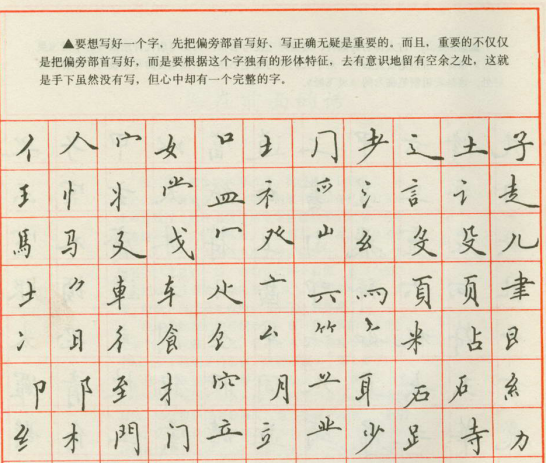 ▲要想写好一个字，先把偏旁部首写好、写正确无疑是重要的。而且，重要的不仅仅
是把偏旁部首写好，而是要根据这个字独有的形体特征，去有意识地留有空余之处，这就
是手下虽然没有写，但心中却有一个完整的字。
亻 人 宀 女 口 土 冂 耂 辶 土 子
王 忄 丬 龸 皿 礻 爫 氵 言 讠 走
馬 马 廴 戈 冖 癶 山 幺 殳 儿
士 車 车 火 亠 六 罒 頁 页 聿
冫 日 彳 食 厶 米 占 日
卩 阝 至 扌 穴 月 耳 石 石 糹
纟 木 門 门 立 业 少 足 寺 力